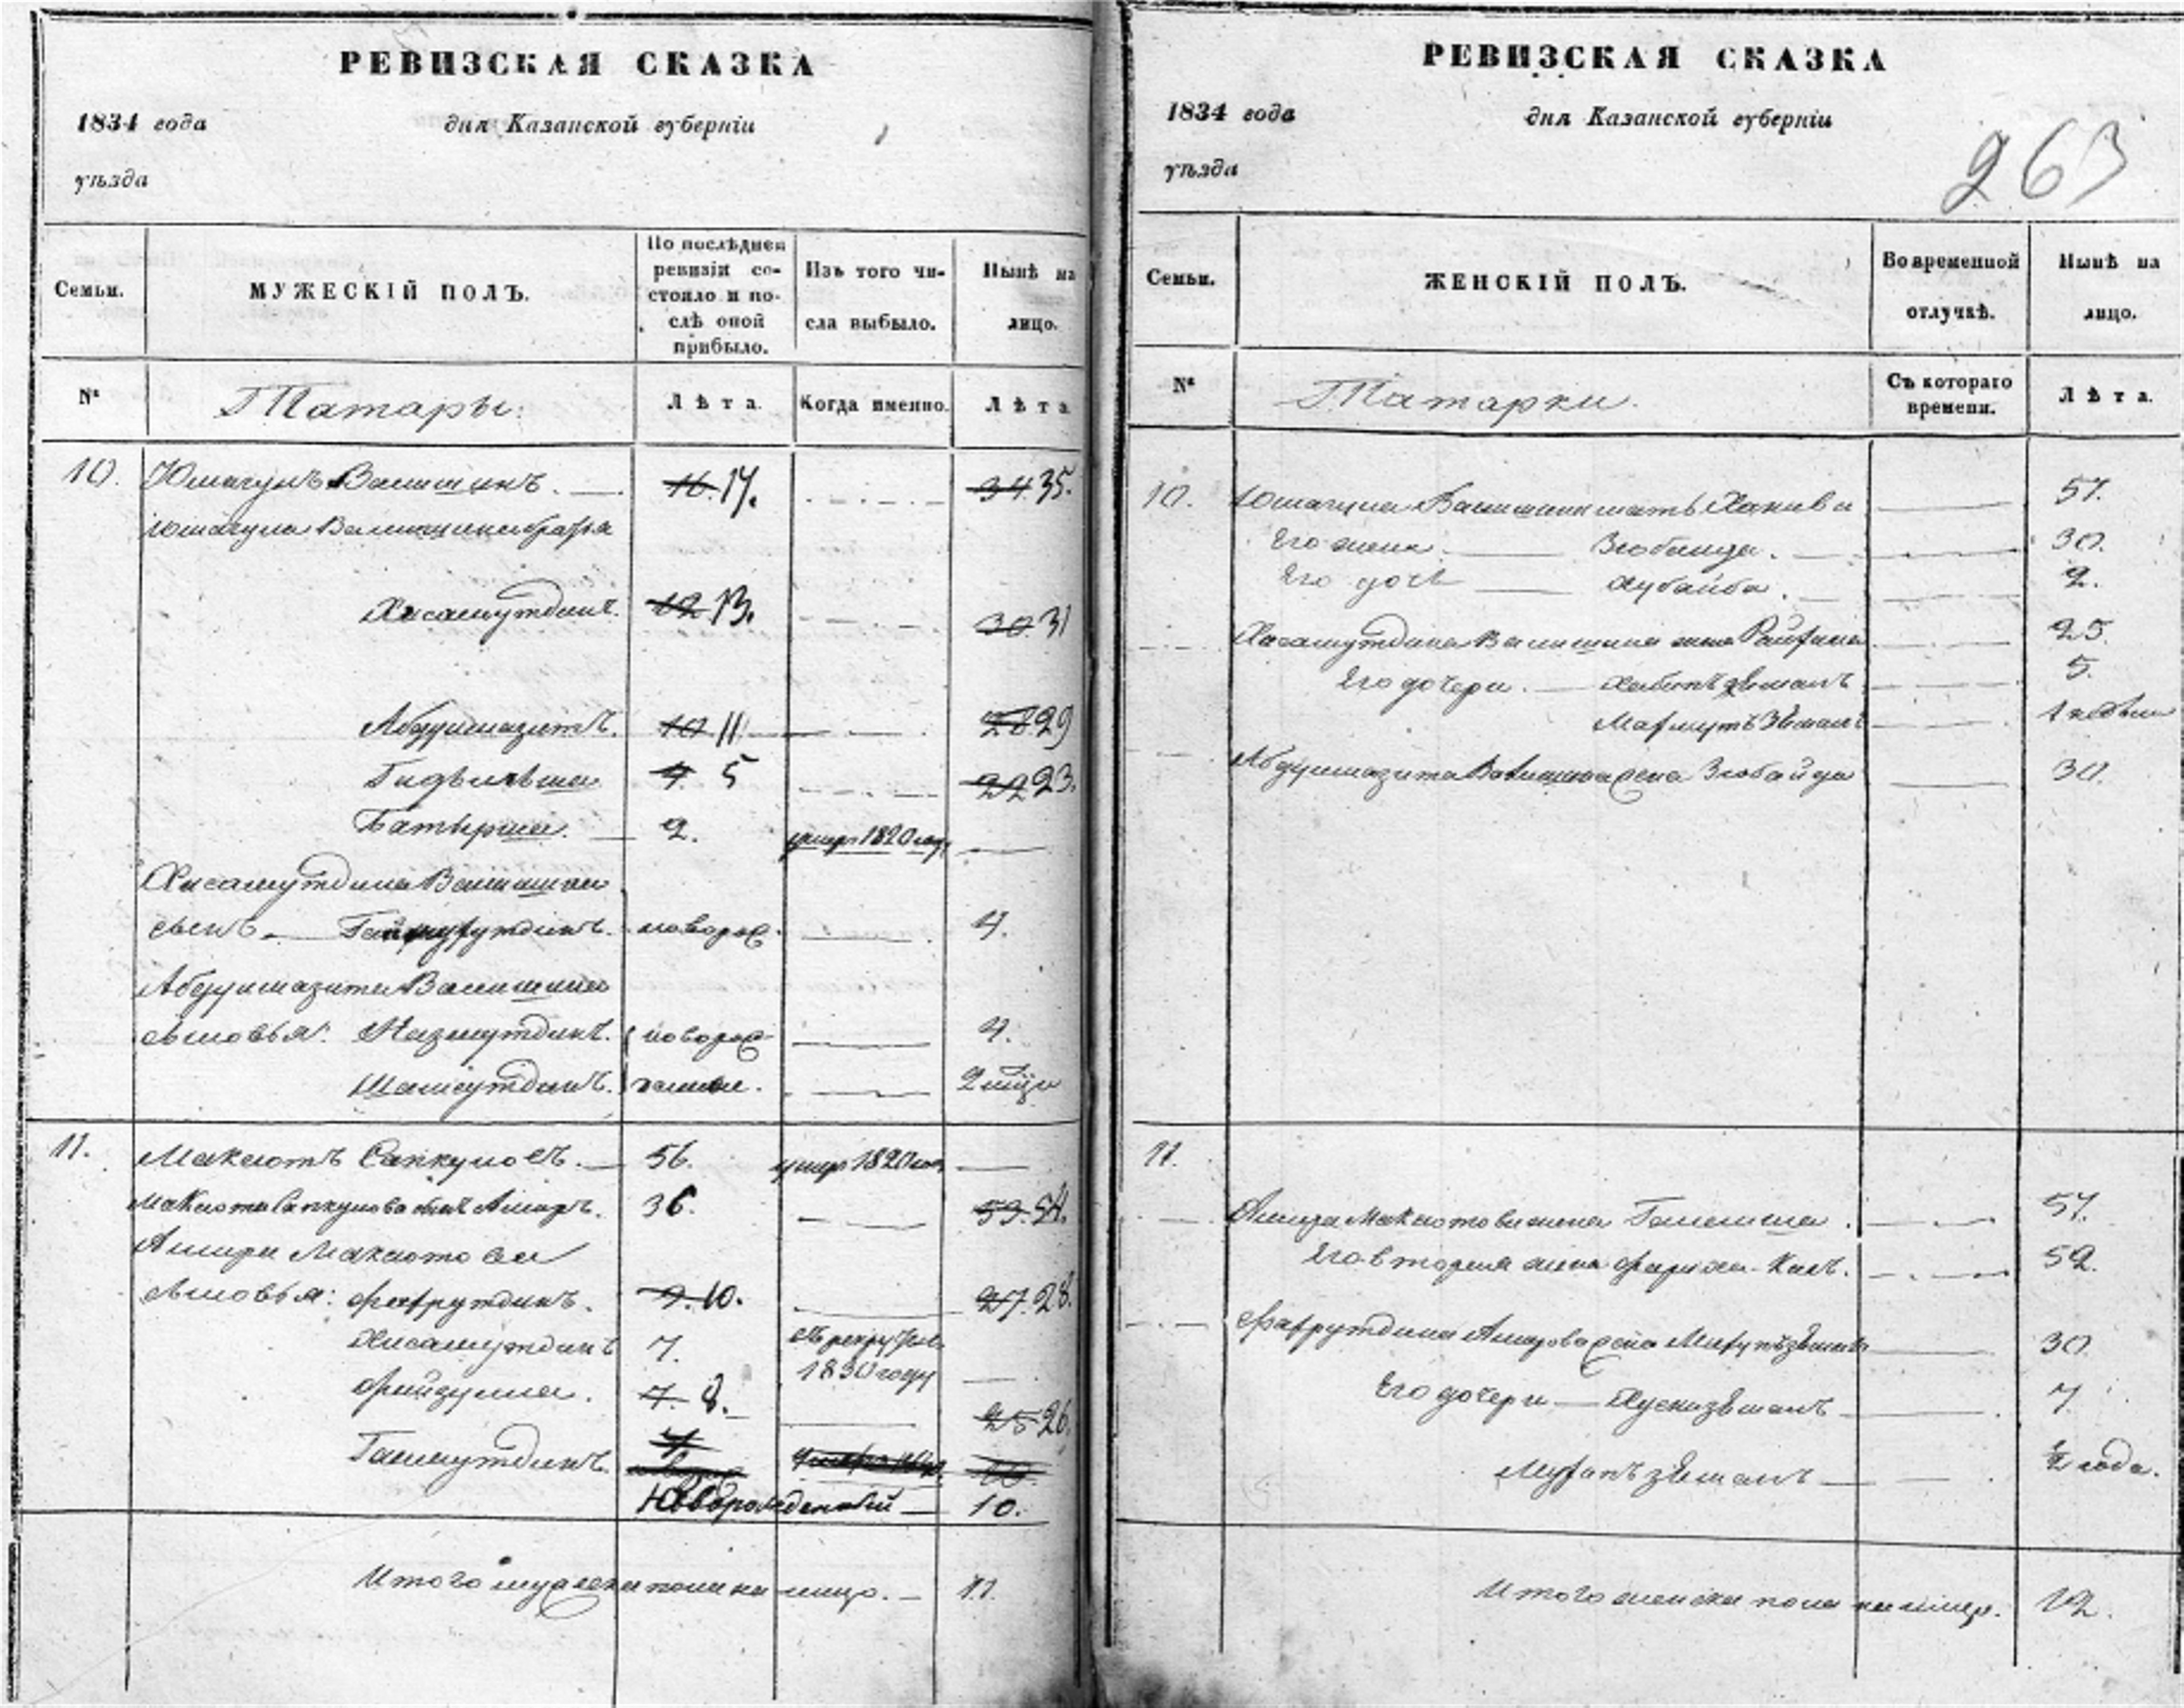 РЕВИЗСКАЯ СКАЗКА
1834 года дня Казанской губерніи
уѣзда
Семьи. МУЖЕСКІЙ ПОЛЪ. По послѣдней ревизіи состояло и послѣ оной прибыло. Изъ того числа выбыло. Нынѣ на лицо.
№ Татары. Лѣта. Когда именно. Лѣта
10. Юмагулъ Валишинъ. 16. 17. 34 35.
Юмагула Валишина братья
Хисамутдинъ. 12 13. 30 31
Абдулмазитъ. 10 11 28 29
5 22 23.
Батырша. 2. умеръ 1820 году
Хисамутдина Валишина
сынъ новорож. 4.
Абдулмазита Валишина
сыновья: Назмутдинъ. новорож- 4.
Шамсутдинъ. 2
11. Максютъ Сапкуловъ. 56. умеръ 1820
Максюта Сапкулова сынъ Амиръ. 36. 53. 54.
Амира Максютова
сыновья: Фахрутдинъ. 9. 10. 27. 28.
Хисамутдинъ 7. въ рекруты
1830 году
Файзулла. 7 8. 25 26.
Новорожденный 10.
Итого мужеска пола на лицо. 11.
РЕВИЗСКАЯ СКАЗКА
1834 года дня Казанской губерніи
уѣзда
263
Семьи. ЖЕНСКІЙ ПОЛЪ. Во временной отлучкѣ. Нынѣ на лицо.
№ Татарки. Съ котораго времени. Лѣта.
10. Юмагула Валишина мать 57.
Его жена. 30.
Его дочь Хубайба. 2.
Хисамутдина Валишина жена 25.
Его дочери. 5.
Абдулмазита Валишина жена Зюбайда 30.
11.
Амира Максютова жена 57.
Его вторая жена 52.
Фахрутдина Амирова жена 30.
Его дочери 7.
½ года.
Итого женска пола на лицо. 12.